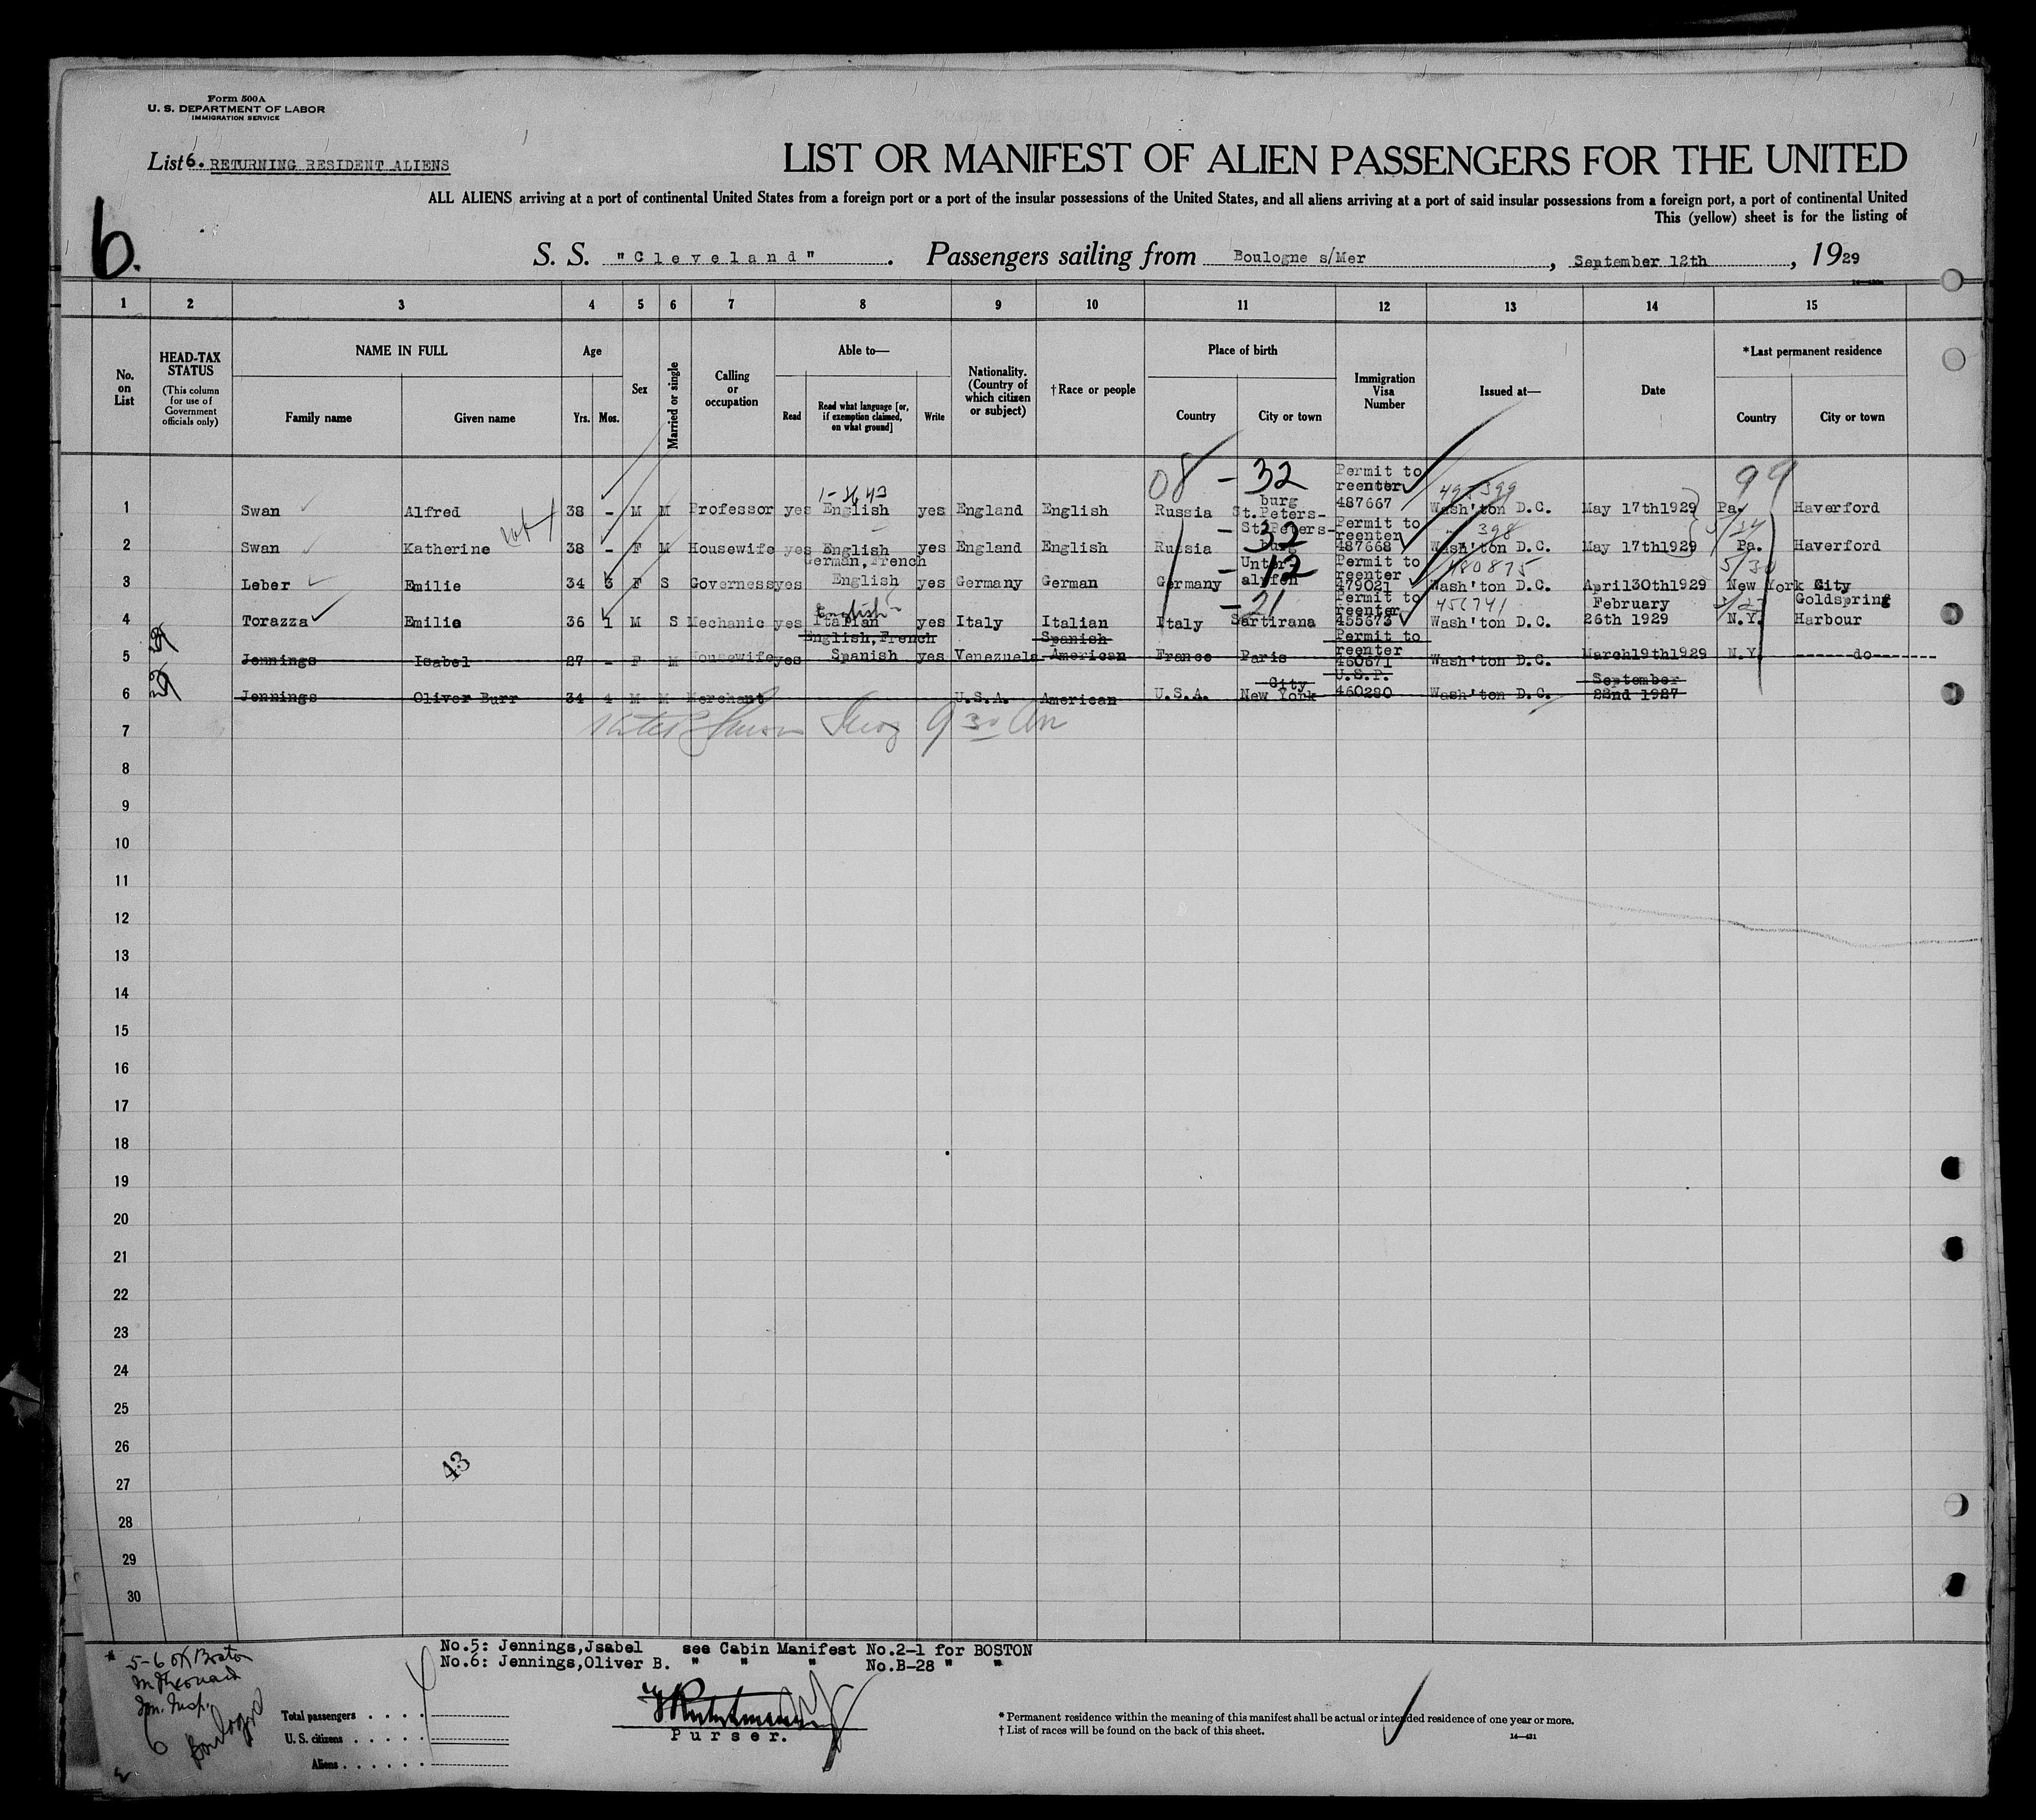 Form 500A
U. S. DEPARTMENT OF LABOR
IMMIGRATION SERVICE
List 6. RETURNING RESIDENT ALIENS
LIST OR MANIFEST OF ALIEN PASSENGERS FOR THE UNITED
ALL ALIENS arriving at a port of continental United States from a foreign port or a port of the insular possessions of the United States, and all aliens arriving at a port of said insular possessions from a foreign port, a port of continental United
This (yellow) sheet is for the listing of
6.
S. S. "Cleveland". Passengers sailing from Boulogne s/Mer, September 12th, 1929
1 2 3 4 5 6 7 8 9 10 11 12 13 14 15
No. on List
HEAD-TAX STATUS
(This column for use of Government officials only)
NAME IN FULL
Family name Given name
Age
Yrs. Mos.
Sex
Married or single
Calling or occupation
Able to—
Read
Read what language [or, if exemption claimed, on what ground]
Write
Nationality. (Country of which citizen or subject)
†Race or people
Place of birth
Country City or town
Immigration Visa Number
Issued at—
Date
*Last permanent residence
Country City or town
08 - 32 99
1 Swan Alfred 38 - M M Professor yes English yes England English Russia St.Petersburg Permit to reenter 487667 Wash'ton D.C. May 17th1929 Pa. Haverford
2 Swan Katherine 38 - F M Housewife yes English yes England English Russia St.Petersburg - 32 Permit to reenter 487668 398 Wash'ton D.C. May 17th1929 Pa. Haverford
3 Leber Emilie 34 3 F S Governess yes German,French English yes Germany German Germany Unteralpfen - 12 Permit to reenter 479021 480875 Wash'ton D.C. April30th1929 5/30 New York City
4 Torazza Emilie 36 1 M S Mechanic yes English Italian yes Italy Italian Italy Sartirana - 21 Permit to reenter 455673 Wash'ton D.C. February 26th 1929 N.Y. Goldspring Harbour
5 Jennings Isabel 27 - F M Housewife yes English,French Spanish yes Venezuela Spanish American France Paris Permit to reenter 460671 Wash'ton D.C. March19th1929 N.Y. ------do------
6 Jennings Oliver Burr 34 4 M M Merchant U.S.A. American U.S.A. City New York U.S.P. 460280 Wash'ton D.C. September 22nd 1927
7
8
9
10
11
12
13
14
15
16
17
18
19
20
21
22
23
24
25
26
27
28
29
30
43
No.5: Jennings,Jsabel see Cabin Manifest No.2-1 for BOSTON
No.6: Jennings,Oliver B. " " " No.B-28 " "
5-6 off Boston
Total passengers . . . .
U. S. citizens . . . . .
Aliens . . . . . .
Purser.
* Permanent residence within the meaning of this manifest shall be actual or intended residence of one year or more.
† List of races will be found on the back of this sheet.
14—431